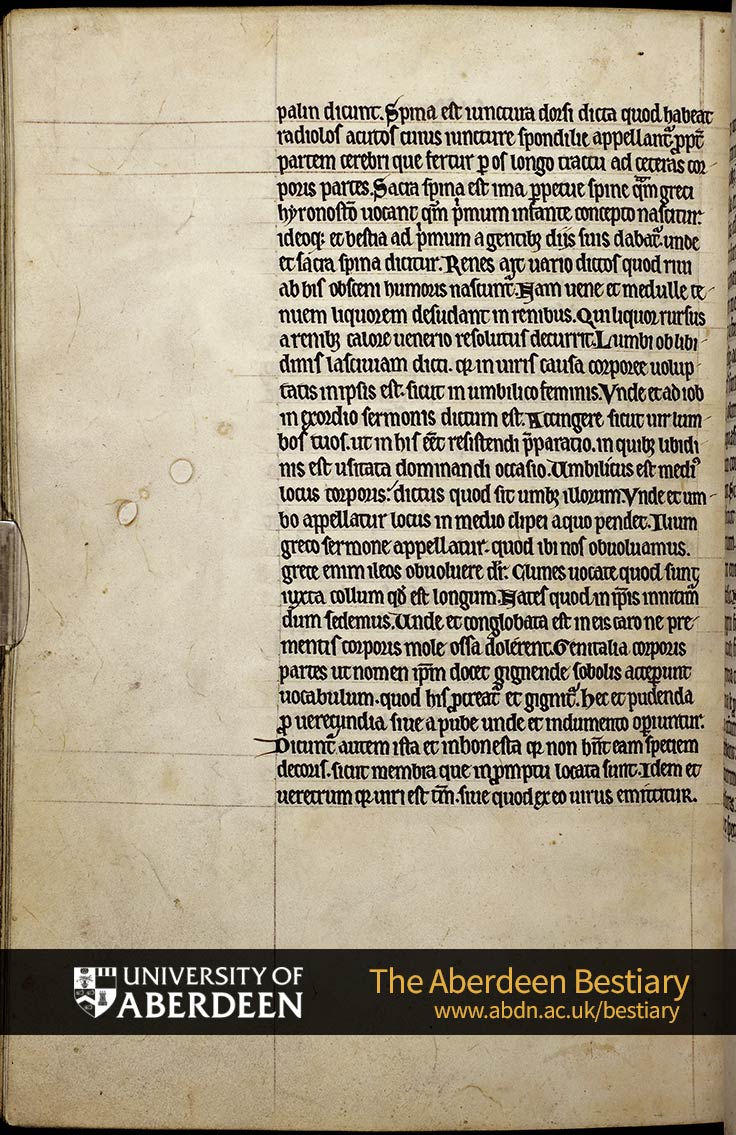 palin dicunt. Spina est iunctura dorsi dicta quod habeat
radiolos acutos cuius iuncture spondilie appellant̄ ꝓpt̄
partem cerebri que fertur ꝑ os longo tractu ad ceteras cor
poris partes. Sacra spina est ima ꝑpetue spine quā greci
hyronosto uocant qm̄ pͥmum infante concepto nascitur.
ideoqꝫ et hestia ad pͥmum a gentibꝫ diis suis dabat̄. unde
et sacra spina dicitur. Renes ait uario dictos quod riui
ab his obsceni humoris nascunt̄. Nam uene et medulle te
nuem liquorem desudant in renibus. Qui liquor rursus
a renibꝫ calore uenerio resolutus decurrit. Lumbi ob libi
dinis lasciuiam dicti. qꝛ in uiris causa corporee uolup
tatis in ipsis est. sicut in umbilico feminis. Vnde et ad iob
in exordio sermonis dictum est. Accingere sicut uir lum
bos tuos. ut in his eēt resistendi p̄paratio. in quibꝫ libidi
nis est usitata dominandi occasio. Umbilicus est mediꝰ
locus corporis. dictus quod sit umbꝫ illorum. Vnde et um
bo appellatur locus in medio clipei a quo pendet. Ilium
greco sermone appellatur. quod ibi nos obuoluamus.
grece enim ileos obuoluere dr̄. Clunes uocate quod sunt
iuxta collum qd̄ est longum. Nates quod in ip̄is innitim̄
dum sedemus. Unde et conglobata est in eis caro ne pre
mentis corporis mole ossa dolerent. Genitalia corporis
partes ut nomen ip̄m docet gignende sobolis acceperunt
uocabulum. quod his ꝓcreat̄ et gignit̄. hec et pudenda
ꝓ uerecundia siue a pube unde et indumento oꝑiuntur.
Dicunt̄ autem ista et inhonesta qꝛ non hn̄t eam speciem
decoris. sicut membra que in ꝓmptu locata sunt. Idem et
ueretrum qꝛ uiri est tm̄. siue quod ex eo uirus emittitur.
UNIVERSITY OF
ABERDEEN
The Aberdeen Bestiary
www.abdn.ac.uk/bestiary